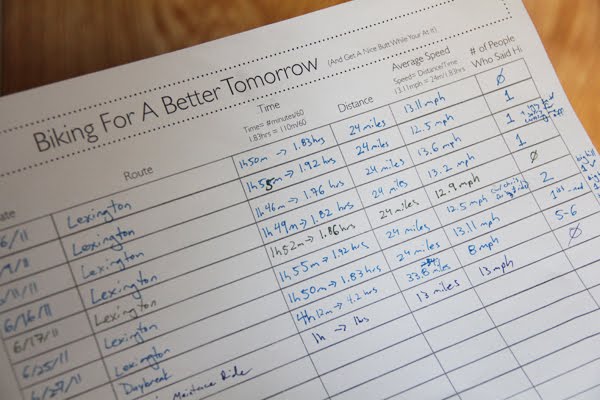 Biking For A Better Tomorrow (And Get A Nice Butt While Your At It)
Route Time Distance Average Speed # of People Who Said Hi
Time= #minutes/60 Speed= Distance/Time
1.83hrs = 110m/60 13.11mph = 24m/1.83hrs
Lexington 1h50m → 1.83hrs 24 miles 13.11 mph Ø
Lexington 1h55m → 1.92 hrs 24 miles 12.5 mph 1
Lexington 1h46m → 1.76 hrs 24 miles 13.6 mph 1
6/16/11 Lexington 1h49m → 1.82 hrs 24 miles 13.2 mph 1
6/17/11 Lexington 1h52m → 1.86hrs 24 miles 12.9 mph Ø
6/25/11 Lexington 1h55m → 1.92hrs 24 miles 12.5 mph 2
6/27/11 Lexington 1h50m → 1.83hrs 24 miles 13.11 mph
Daybreak 4h12m → 4.2 hrs 33.8 miles 8 mph 5-6
Ride 1h → 1hrs 13 miles 13 mph Ø